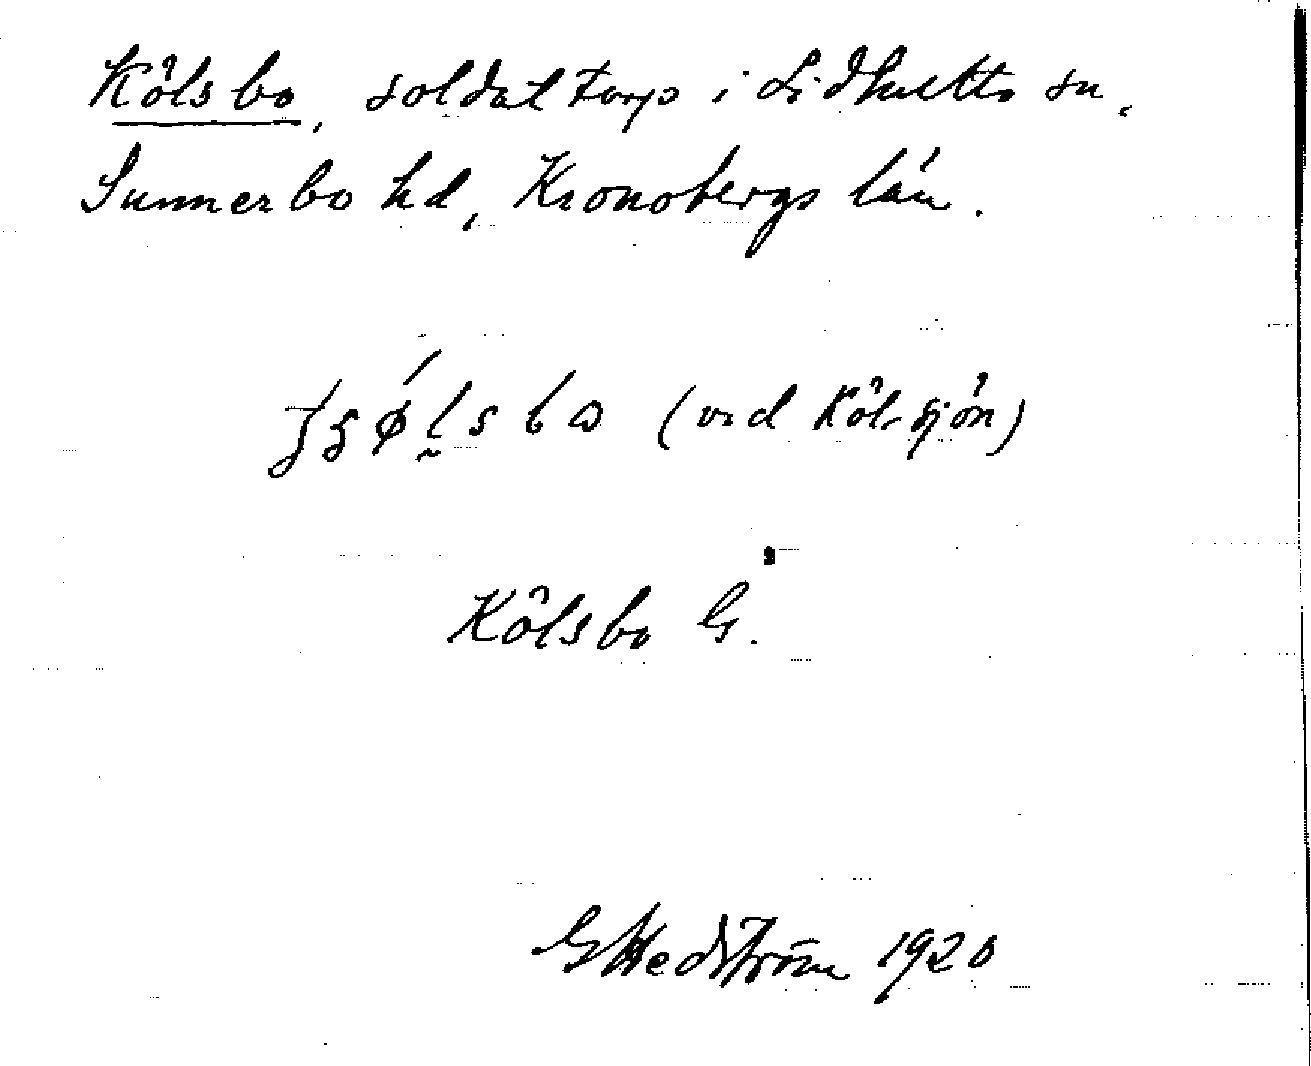 Kölsbo, soldattorp i Lidhults sn.
Sunnerbo hd, Kronobergs län.
(vid Kölsjön)
Kölsbo G.
G Hedström 1920